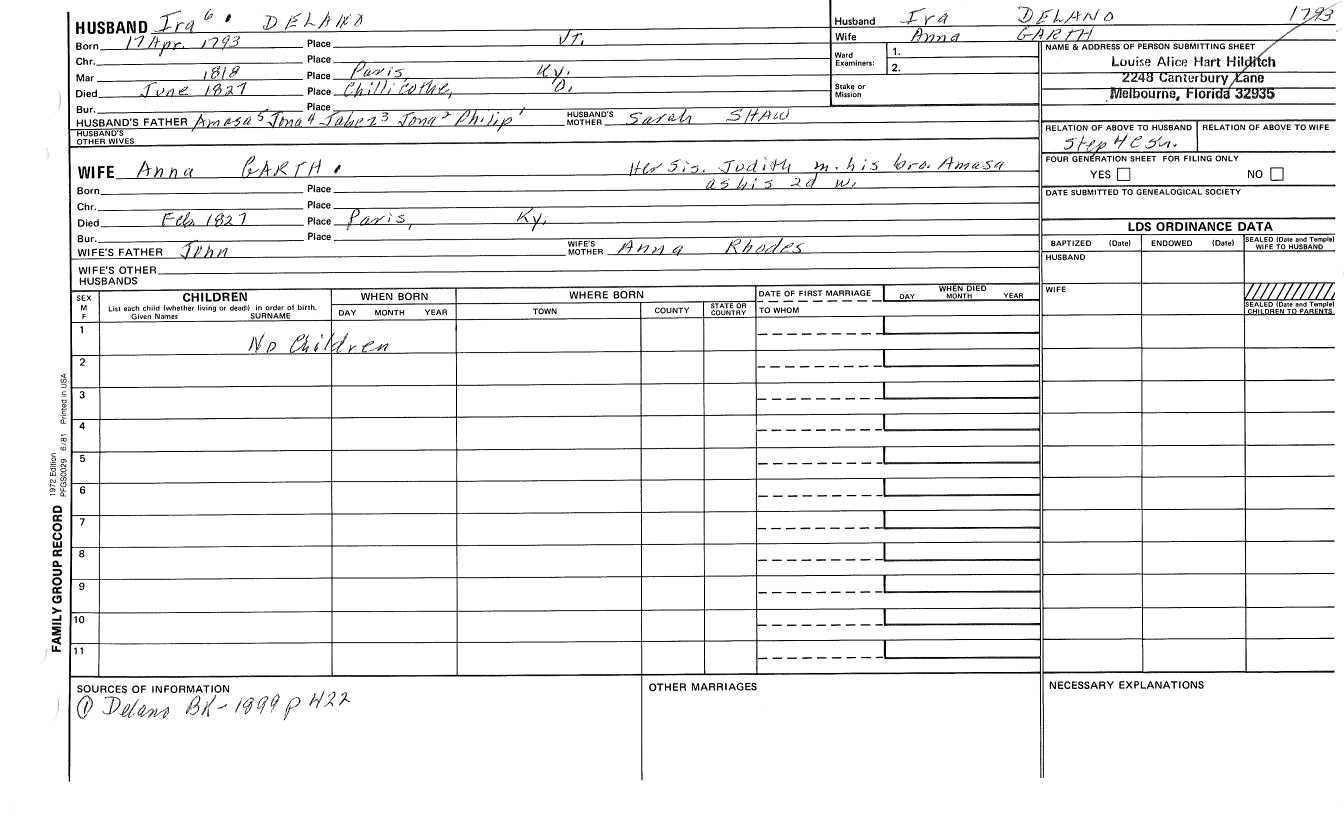 HUSBAND Ira 6 DELANO
Born 17 Apr. 1793 Place VT.
Chr. Place
Mar 1818 Place Paris, Ky.
Died June 1827 Place Chillicothe, O.
Bur. Place
HUSBAND'S FATHER Amasa 5 Jona 4 Jabez 3 Jona 2 Philip 1 HUSBAND'S MOTHER Sarah SHAW
HUSBAND'S OTHER WIVES
WIFE Anna GARTH. Her Sis. Judith m. his bro. Amasa
as his 2d w.
Born Place
Chr. Place
Died Feb 1827 Place Paris, Ky.
Bur. Place
WIFE'S FATHER John WIFE'S MOTHER Anna Rhodes
WIFE'S OTHER HUSBANDS
Husband Ira DELANO 1793
Wife Anna GARTH
Ward Examiners: 1.
2.
Stake or Mission
NAME & ADDRESS OF PERSON SUBMITTING SHEET
Louise Alice Hart Hilditch
2248 Canterbury Lane
Melbourne, Florida 32935
RELATION OF ABOVE TO HUSBAND RELATION OF ABOVE TO WIFE
Step 4 Csn.
FOUR GENERATION SHEET FOR FILING ONLY
YES NO
DATE SUBMITTED TO GENEALOGICAL SOCIETY
LDS ORDINANCE DATA
BAPTIZED (Date) ENDOWED (Date) SEALED (Date and Temple) WIFE TO HUSBAND
HUSBAND
WIFE
SEALED (Date and Temple) CHILDREN TO PARENTS
SEX M F CHILDREN WHEN BORN WHERE BORN DATE OF FIRST MARRIAGE WHEN DIED
List each child (whether living or dead) in order of birth.
Given Names SURNAME DAY MONTH YEAR TOWN COUNTY STATE OR COUNTRY TO WHOM DAY MONTH YEAR
1
No Children
2
3
4
5
6
7
8
9
10
11
FAMILY GROUP RECORD 1972 Edition PFGS0029 6/81 Printed in USA
SOURCES OF INFORMATION
① Delano BK - 1899 p 422
OTHER MARRIAGES
NECESSARY EXPLANATIONS